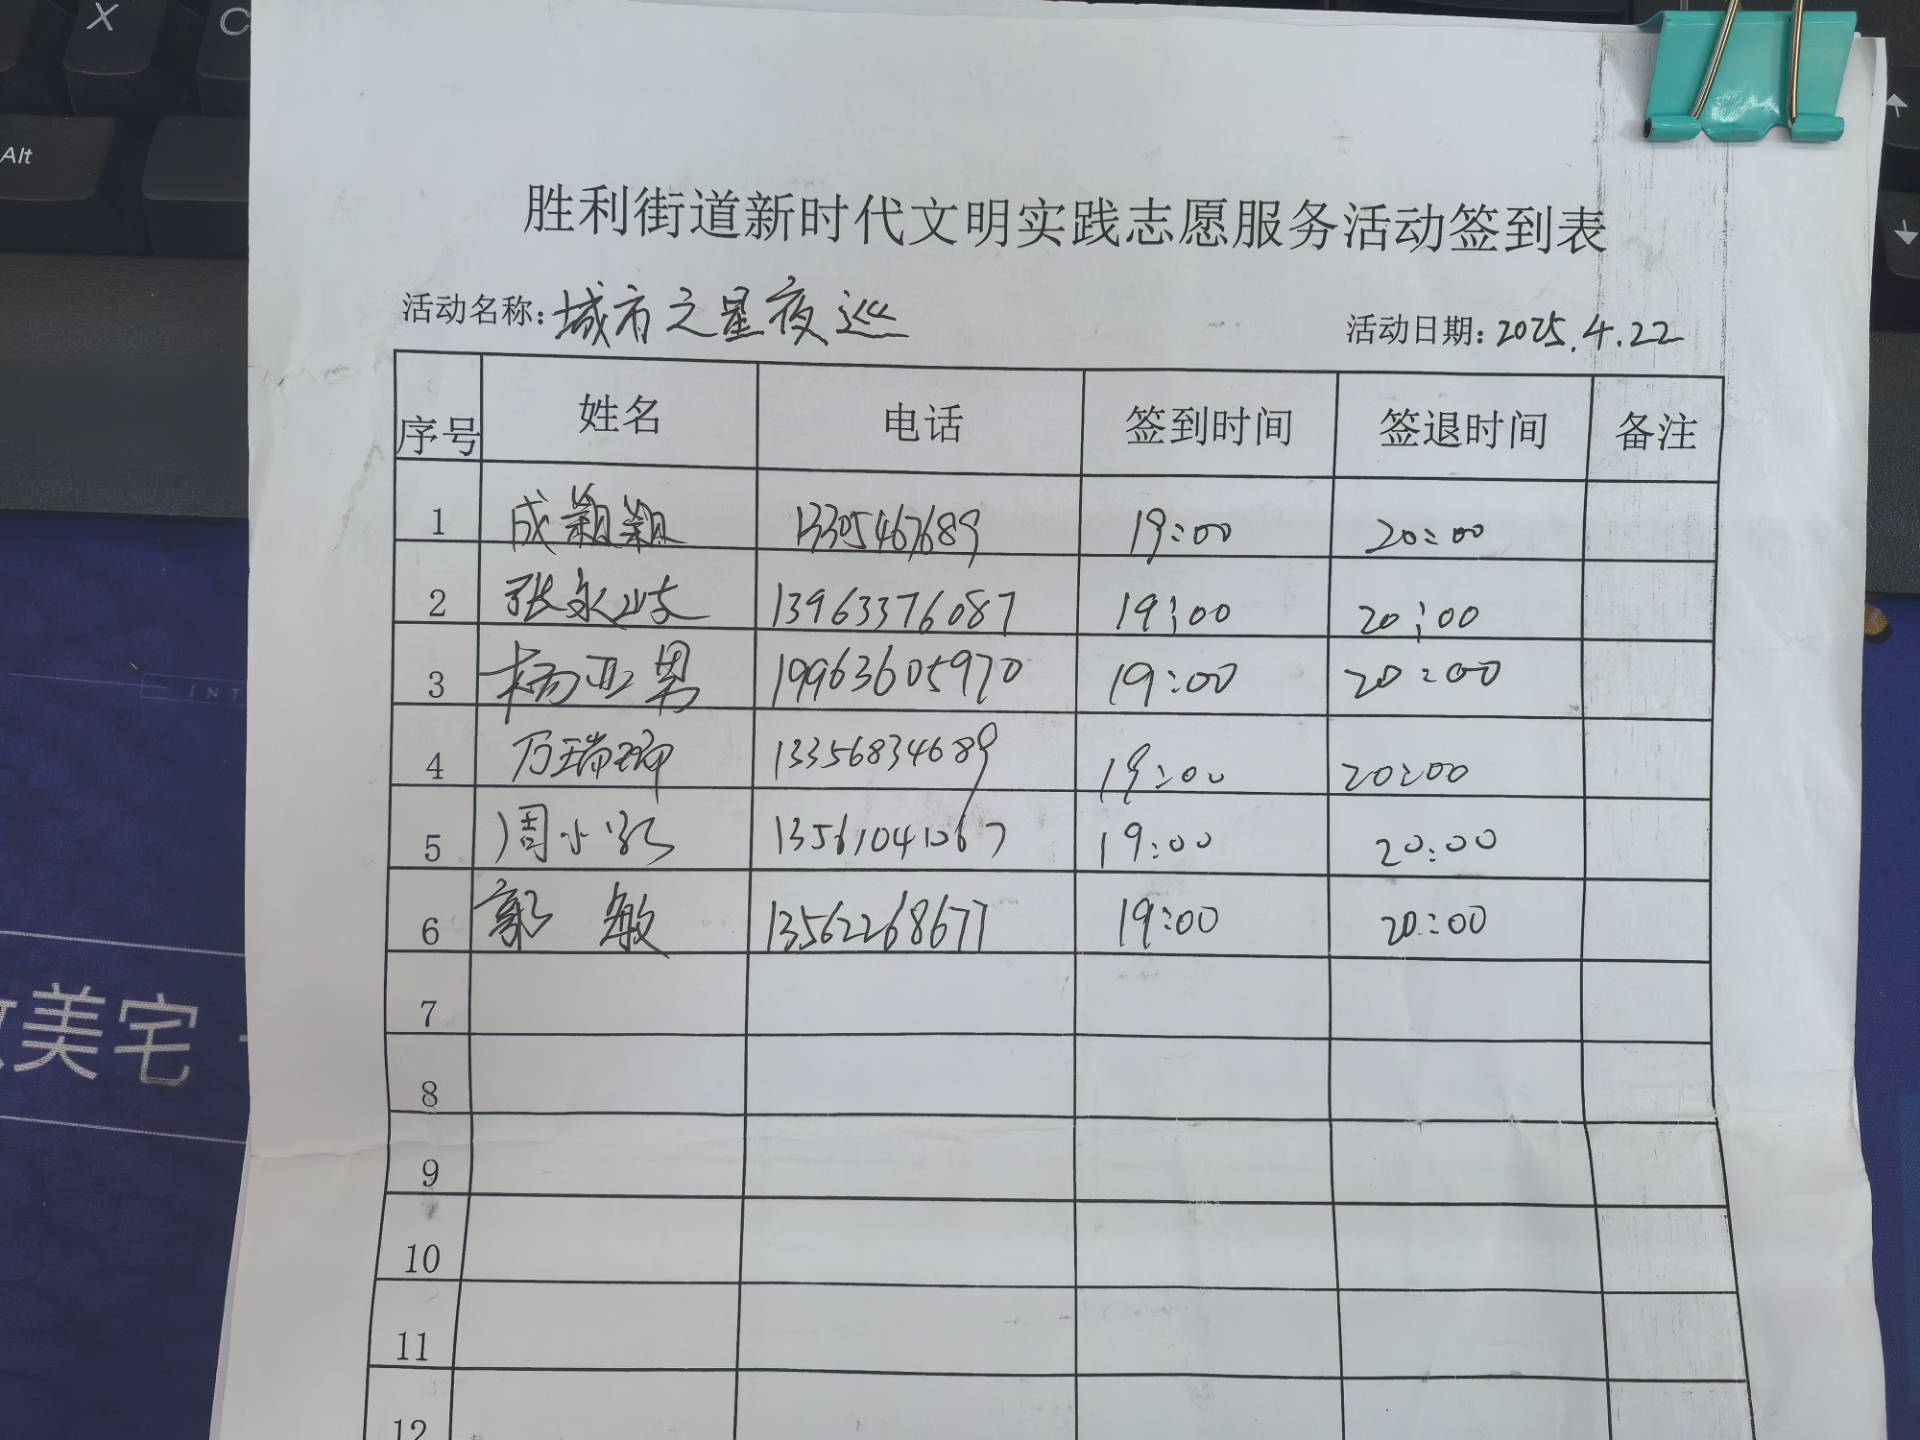 X
C
Alt
胜利街道新时代文明实践志愿服务活动签到表
活动名称: 城市之星夜巡 活动日期: 2025.4.22
序号 姓名 电话 签到时间 签退时间 备注
1 成颖颖 13305467689 19:00 20:00
2 张永岐 13963376087 19:00 20:00
3 杨亚男 19963605970 19:00 20:00
4 万瑞 13356834689 19:00 20:00
5 周小 13561041067 19:00 20:00
6 郭敏 13562268677 19:00 20:00
7
8
9
10
11
12
INT
美宅